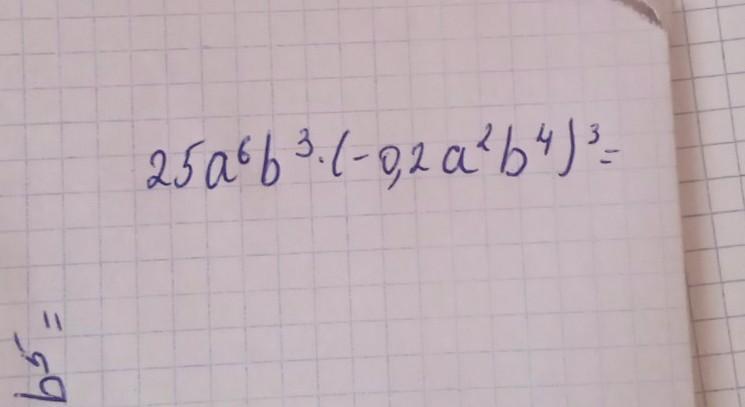 25a⁶b³·(-0,2a²b⁴)³=
b⁵=